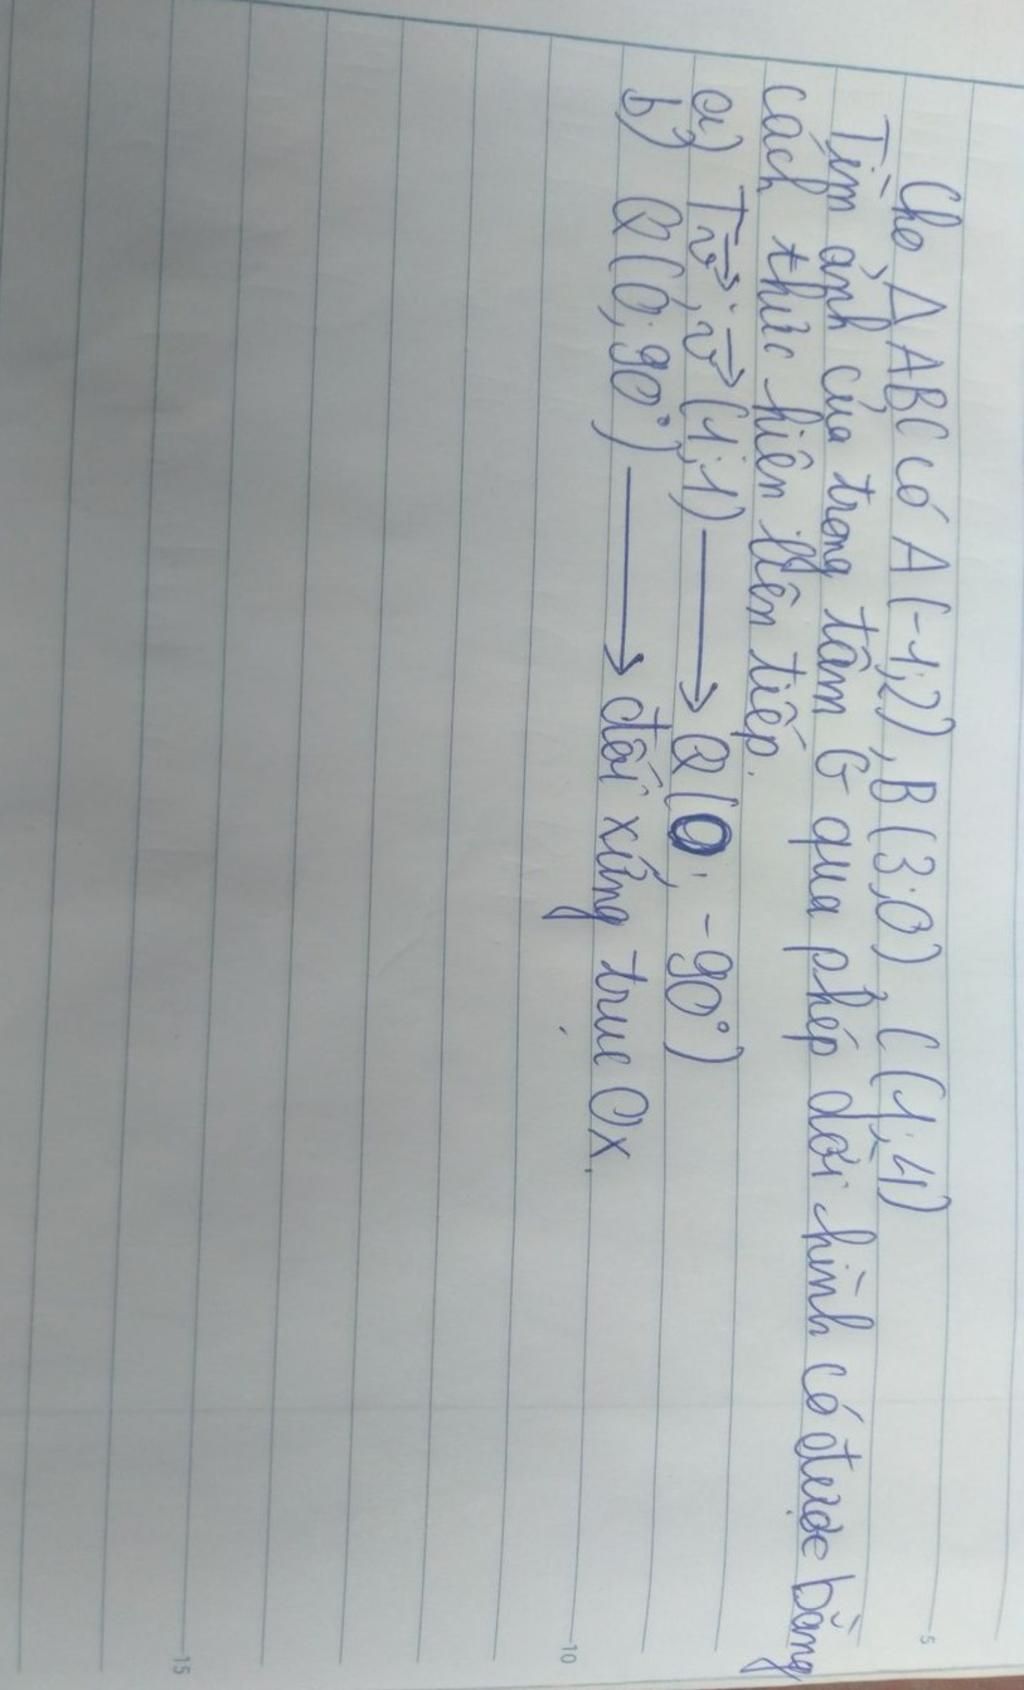 Cho Δ ABC có A(-1;2), B(3;0), C(1;4)
Tìm ảnh của trọng tâm G qua phép dời hình có được bằng
cách thức hiện liên tiếp.
a) T v→, v→(1;1) ⟶ Q(O; -90°)
b) Q(O; 90°) ⟶ đối xứng trục Ox.
5
10
15